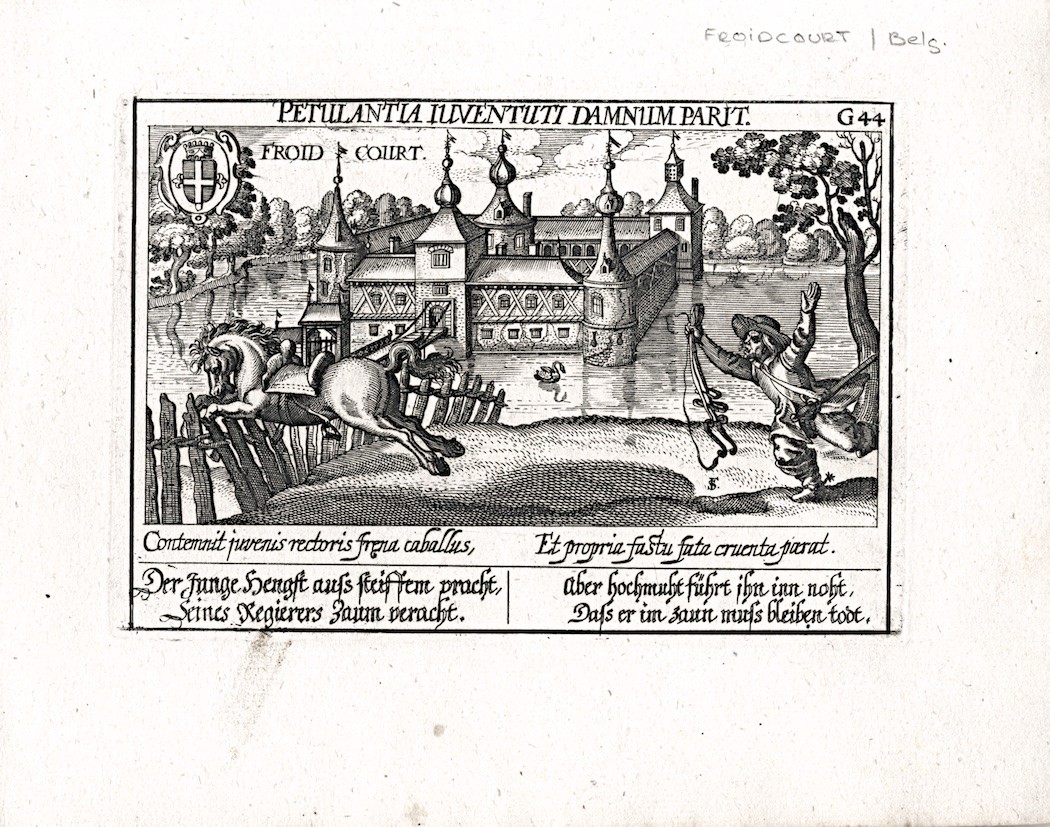 FROIDCOURT | Belg.
PETULANTIA IUVENTUTI DAMNUM PARIT.
G 44
FROID COURT.
Contemnit juvenis rectoris frena caballus,
Et propria fastu fata cruenta parat.
Der Junge Hengst auss steiffem pracht,
Seines Regierers Zaum veracht.
Aber hochmuht führt jhn inn noht,
Dass er im zaun muss bleiben todt.